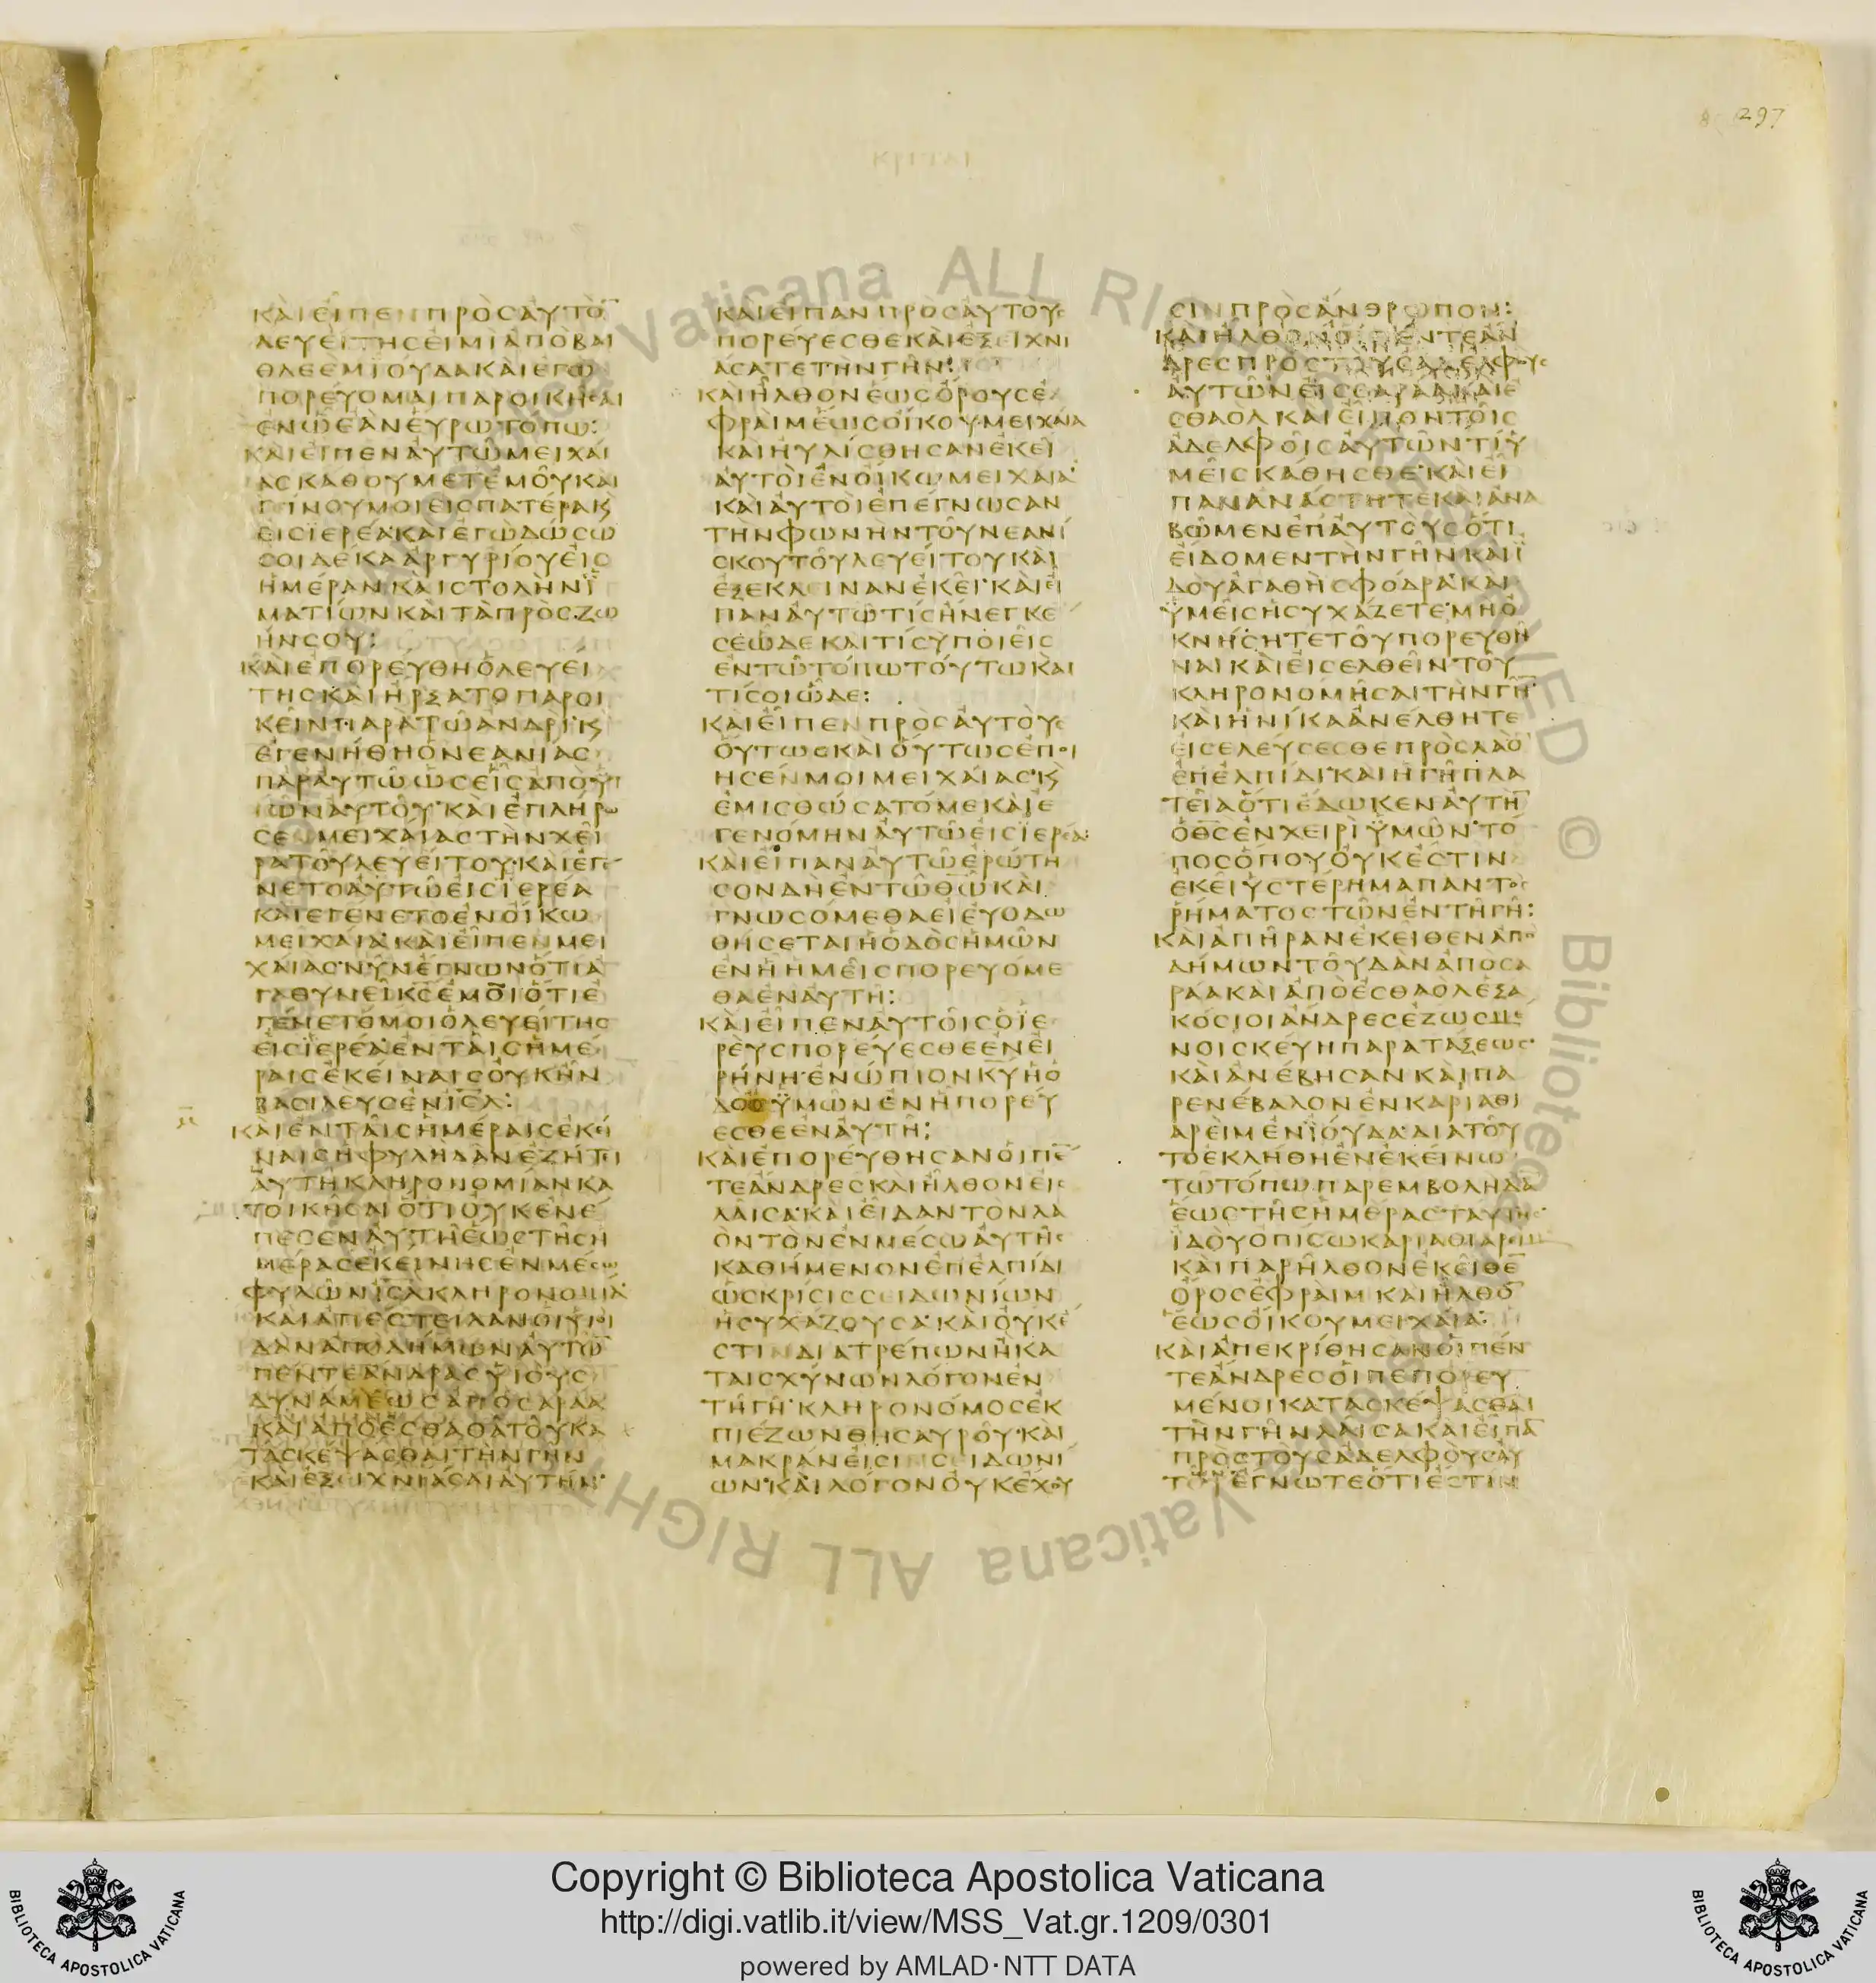 297
ΚΡΙΤΑΙ
ΚΑΙΕΙΠΕΝΠΡΟΣΑΥΤΟ̅
ΛΕΥΕΙΤΗΣΕΙΜΙΑΠΟΒΑΙ
ΘΛΕΕΜΙΟΥΔΑΚΑΙΕΓΩ
ΠΟΡΕΥΟΜΑΙΠΑΡΟΙΚΗΣΑΙ
ΕΝΩΕΑΝΕΥΡΩΤΟΠΩ:
ΚΑΙΕΙΠΕΝΑΥΤΩΜΕΙΧΑΙ
ΑΣΚΑΘΟΥΜΕΤΕΜΟΥΚΑΙ
ΓΕΙΝΟΥΜΟΙΕΙΣΠΑΤΕΡΑΚ
ΕΙΣΪΕΡΕΑ·ΚΑΙΕΓΩΔΩΣΩ
ΣΟΙΔΕΚΑΑΡΓΥΡΙΟΥΕΙΣ
ΗΜΕΡΑΝΚΑΙΣΤΟΛΗΝΪ
ΜΑΤΙΩΝΚΑΙΤΑΠΡΟΣΖΩ
ΗΝΣΟΥ:
ΚΑΙΕΠΟΡΕΥΘΗΟΛΕΥΕΙ
ΤΗΣΚΑΙΗΡΞΑΤΟΠΑΡΟΙ
ΚΕΙΝΠΑΡΑΤΩΑΝΔΡΙ·Κ
ΕΓΕΝΗΘΗΟΝΕΑΝΙΑΣ
ΠΑΡΑΥΤΩΩΣΕΙΣΑΠΟΥΙ
ΩΝΑΥΤΟΥ·ΚΑΙΕΠΛΗΡΩ
ΣΕΝΜΕΙΧΑΙΑΣΤΗΝΧΕΙ
ΡΑΤΟΥΛΕΥΕΙΤΟΥ·ΚΑΙΕΓΕ
ΝΕΤΟΑΥΤΩΕΙΣΪΕΡΕΑ
ΚΑΙΕΓΕΝΕΤΟΕΝΟΙΚΩ
ΜΕΙΧΑΙΑ·ΚΑΙΕΙΠΕΝΜΕΙ
ΧΑΙΑΣ·ΝΥΝΕΓΝΩΝΟΤΙΑ
ΓΑΘΥΝΕΙΚ̅Σ̅ΕΜΟΙΟΤΙΕ
ΓΕΝΕΤΟΜΟΙΟΛΕΥΕΙΤΗΣ
ΕΙΣΪΕΡΕΑ·ΕΝΤΑΙΣΗΜΕ
ΡΑΙΣΕΚΕΙΝΑΙΣΟΥΚΗΝ
ΒΑΣΙΛΕΥΣΕΝΙ̅Σ̅Λ̅:
ΚΑΙΕΝΤΑΙΣΗΜΕΡΑΙΣΕΚΕΙ
ΝΑΙΣΗΦΥΛΗΔΑΝΕΖΗΤΕΙ
ΑΥΤΗΚΛΗΡΟΝΟΜΙΑΝΚΑ
ΤΟΙΚΗΣΑΙΟΤΙΟΥΚΕΝΕ
ΠΕΣΕΝΑΥΤΗΕΩΣΤΗΣΗ
ΜΕΡΑΣΕΚΕΙΝΗΣΕΝΜΕΣΩ
ΦΥΛΩΝΙ̅Σ̅Λ̅ΚΛΗΡΟΝΟΜΙΑ
ΚΑΙΑΠΕΣΤΕΙΛΑΝΟΙΥΙΟΙ
ΔΑΝΑΠΟΔΗΜΩΝΑΥΤΩ̅
ΠΕΝΤΕΑΝΔΡΑΣΥΙΟΥΣ
ΔΥΝΑΜΕΩΣΑΠΟΣΑΡΑΑ
ΚΑΙΑΠΟΕΣΘΑΟΛΤΟΥΚΑ
ΤΑΣΚΕΨΑΣΘΑΙΤΗΝΓΗΝ
ΚΑΙΕΞΕΙΧΝΙΑΣΑΙΑΥΤΗΝ·
ΚΑΙΕΙΠΑΝΠΡΟΣΑΥΤΟΥΣ
ΠΟΡΕΥΕΣΘΕΚΑΙΕΞΕΙΧΝΙ
ΑΣΑΤΕΤΗΝΓΗΝ:
ΚΑΙΗΛΘΟΝΕΩΣΟΡΟΥΣΕ
ΦΡΑΙΜΕΩΣΟΙΚΟΥΜΕΙΧΑΙΑ
ΚΑΙΗΥΛΙΣΘΗΣΑΝΕΚΕΙ
ΑΥΤΟΙΕΝΟΙΚΩΜΕΙΧΑΙΑ
ΚΑΙΑΥΤΟΙΕΠΕΓΝΩΣΑΝ
ΤΗΝΦΩΝΗΝΤΟΥΝΕΑΝΙ
ΣΚΟΥΤΟΥΛΕΥΕΙΤΟΥΚΑΙ
ΕΞΕΚΛΕΙΝΑΝΕΚΕΙ·ΚΑΙΕΙ
ΠΑΝΑΥΤΩΤΙΣΗΝΕΓΚΕ
ΣΕΩΔΕΚΑΙΤΙΣΥΠΟΙΕΙΣ
ΕΝΤΩΤΟΠΩΤΟΥΤΩΚΑΙ
ΤΙΣΟΙΩΔΕ:
ΚΑΙΕΙΠΕΝΠΡΟΣΑΥΤΟΥΣ
ΟΥΤΩΣΚΑΙΟΥΤΩΣΕΠΟΙ
ΗΣΕΝΜΟΙΜΕΙΧΑΙΑΣ·Κ
ΕΜΙΣΘΩΣΑΤΟΜΕΚΑΙΕ
ΓΕΝΟΜΗΝΑΥΤΩΕΙΣΪΕΡΕΑ:
ΚΑΙΕΙΠΑΝΑΥΤΩΕΡΩΤΗ
ΣΟΝΔΗΕΝΤΩΘ̅Ω̅ΚΑΙ
ΓΝΩΣΟΜΕΘΑΕΙΕΥΟΔΩ
ΘΗΣΕΤΑΙΗΟΔΟΣΗΜΩΝ
ΕΝΗΗΜΕΙΣΠΟΡΕΥΟΜΕ
ΘΑΕΝΑΥΤΗ:
ΚΑΙΕΙΠΕΝΑΥΤΟΙΣΟΪΕ
ΡΕΥΣΠΟΡΕΥΕΣΘΕΕΝΕΙ
ΡΗΝΗ·ΕΝΩΠΙΟΝΚ̅Υ̅ΗΟ
ΔΟΣΫΜΩΝΕΝΗΠΟΡΕΥ
ΕΣΘΕΕΝΑΥΤΗ:
ΚΑΙΕΠΟΡΕΥΘΗΣΑΝΟΙΠΕ̅
ΤΕΑΝΔΡΕΣΚΑΙΗΛΘΟΝΕΙΣ
ΛΑΙΣΑ·ΚΑΙΕΙΔΑΝΤΟΝΛΑ
ΟΝΤΟΝΕΝΜΕΣΩΑΥΤΗΣ
ΚΑΘΗΜΕΝΟΝΕΠΕΛΠΙΔΙ
ΩΣΚΡΙΣΙΣΣΕΙΔΩΝΙΩΝ
ΗΣΥΧΑΖΟΥΣΑ·ΚΑΙΟΥΚΕ
ΣΤΙΝΔΙΑΤΡΕΠΩΝΗΚΑ
ΤΑΙΣΧΥΝΩΝΛΟΓΟΝΕΝ
ΤΗΓΗ·ΚΛΗΡΟΝΟΜΟΣΕΚ
ΠΙΕΖΩΝΘΗΣΑΥΡΟΥ·ΚΑΙ
ΜΑΚΡΑΝΕΙΣΙΝΣΕΙΔΩΝΙ
ΩΝ·ΚΑΙΛΟΓΟΝΟΥΚΕΧΟΥ
ΣΙΝΠΡΟΣΑΝΘΡΩΠΟΝ:
ΚΑΙΗΛΘΟΝΟΙΠΕΝΤΕΑΝ
ΔΡΕΣΠΡΟΣΤΟΥΣΑΔΕΛΦΟΥΣ
ΑΥΤΩΝΕΙΣΣΑΡΑΑΚΑΙΕ
ΣΘΑΟΛΚΑΙΕΙΠΟΝΤΟΙΣ
ΑΔΕΛΦΟΙΣΑΥΤΩΝΤΙΥ
ΜΕΙΣΚΑΘΗΣΘΕ·ΚΑΙΕΙ
ΠΑΝΑΝΑΣΤΗΤΕΚΑΙΑΝΑ
ΒΩΜΕΝΕΠΑΥΤΟΥΣΟΤΙ
ΕΙΔΟΜΕΝΤΗΝΓΗΝΚΑΙΪ
ΔΟΥΑΓΑΘΗΣΦΟΔΡΑ·ΚΑΙ
ΥΜΕΙΣΗΣΥΧΑΖΕΤΕ·ΜΗΟ
ΚΝΗΣΗΤΕΤΟΥΠΟΡΕΥΘΗ
ΝΑΙΚΑΙΕΙΣΕΛΘΕΙΝΤΟΥ
ΚΛΗΡΟΝΟΜΗΣΑΙΤΗΝΓΗ̅·
ΚΑΙΗΝΙΚΑΑΝΕΛΘΗΤΕ
ΕΙΣΕΛΕΥΣΕΣΘΕΠΡΟΣΛΑΟ̅
ΕΠΕΛΠΙΔΙ·ΚΑΙΗΓΗΠΛΑ
ΤΕΙΑΟΤΙΕΔΩΚΕΝΑΥΤΗ̅
ΟΘ̅Σ̅ΕΝΧΕΙΡΙΫΜΩΝ·ΤΟ
ΠΟΣΟΠΟΥΟΥΚΕΣΤΙΝ
ΕΚΕΙΥΣΤΕΡΗΜΑΠΑΝΤΟΣ
ΡΗΜΑΤΟΣΤΩΝΕΝΤΗΓΗ:
ΚΑΙΑΠΗΡΑΝΕΚΕΙΘΕΝΑΠΟ
ΔΗΜΩΝΤΟΥΔΑΝΑΠΟΣΑ
ΡΑΑΚΑΙΑΠΟΕΣΘΑΟΛΕΞΑ
ΚΟΣΙΟΙΑΝΔΡΕΣΕΖΩΣΜΕ
ΝΟΙΣΚΕΥΗΠΑΡΑΤΑΞΕΩΣ·
ΚΑΙΑΝΕΒΗΣΑΝΚΑΙΠΑ
ΡΕΝΕΒΑΛΟΝΕΝΚΑΡΙΑΘΙ
ΑΡΕΙΜΕΝΪΟΥΔΑ·ΔΙΑΤΟΥ
ΤΟΕΚΛΗΘΗΕΝΕΚΕΙΝΩ
ΤΩΤΟΠΩΠΑΡΕΜΒΟΛΗΔΑ̅
ΕΩΣΤΗΣΗΜΕΡΑΣΤΑΥΤΗΣ·
ΪΔΟΥΟΠΙΣΩΚΑΡΙΑΘΙΑΡΕΙΜ
ΚΑΙΠΑΡΗΛΘΟΝΕΚΕΙΘΕ̅
ΟΡΟΣΕΦΡΑΙΜΚΑΙΗΛΘΟ̅
ΕΩΣΟΙΚΟΥΜΕΙΧΑΙΑ:
ΚΑΙΑΠΕΚΡΙΘΗΣΑΝΟΙΠΕΝ
ΤΕΑΝΔΡΕΣΟΙΠΕΠΟΡΕΥ
ΜΕΝΟΙΚΑΤΑΣΚΕΨΑΣΘΑΙ
ΤΗΝΓΗΝΛΑΙΣΑΚΑΙΕΙΠΑ̅
ΠΡΟΣΤΟΥΣΑΔΕΛΦΟΥΣΑΥ
ΤΩ̅ΕΓΝΩΤΕΟΤΙΕΣΤΙΝ
Vaticana ALL RIGHTS RESERVED © Biblioteca Apostolica Vaticana ALL RIGHTS
Copyright © Biblioteca Apostolica Vaticana
http://digi.vatlib.it/view/MSS_Vat.gr.1209/0301
powered by AMLAD·NTT DATA
BIBLIOTECA APOSTOLICA VATICANA
BIBLIOTECA APOSTOLICA VATICANA